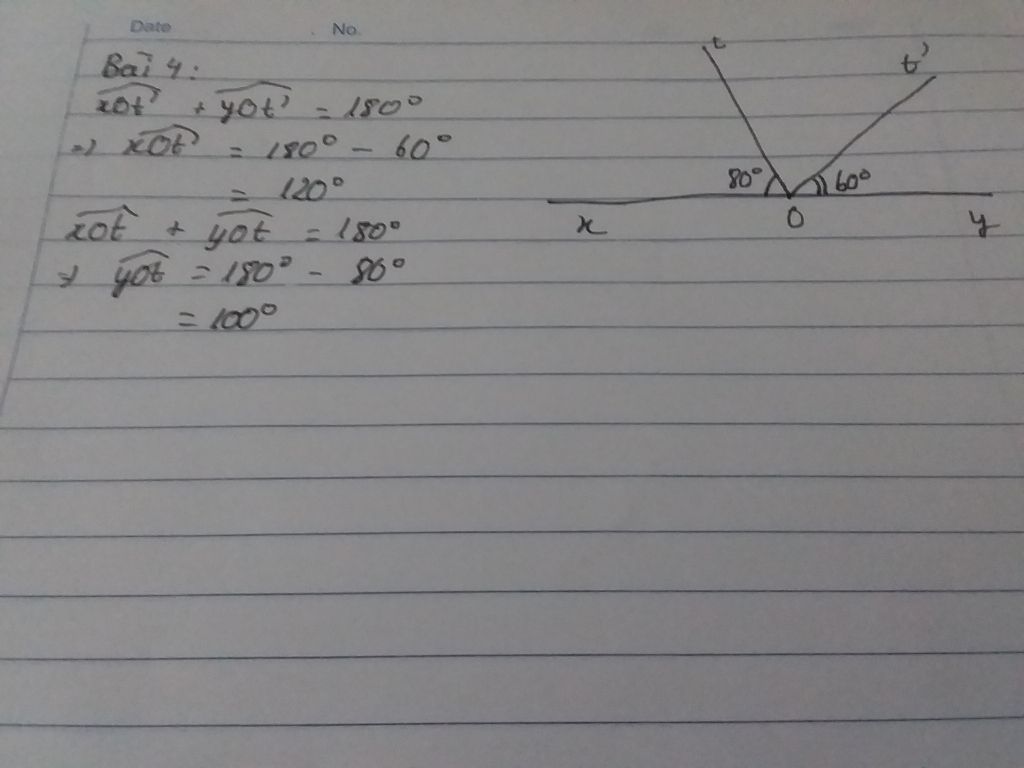 Date No.
Bài 4:
xOt' + yOt' = 180°
=> xOt' = 180° - 60°
= 120°
xOt + yOt = 180°
=> yOt = 180° - 80°
= 100°
t
t'
80°
60°
x
O
y